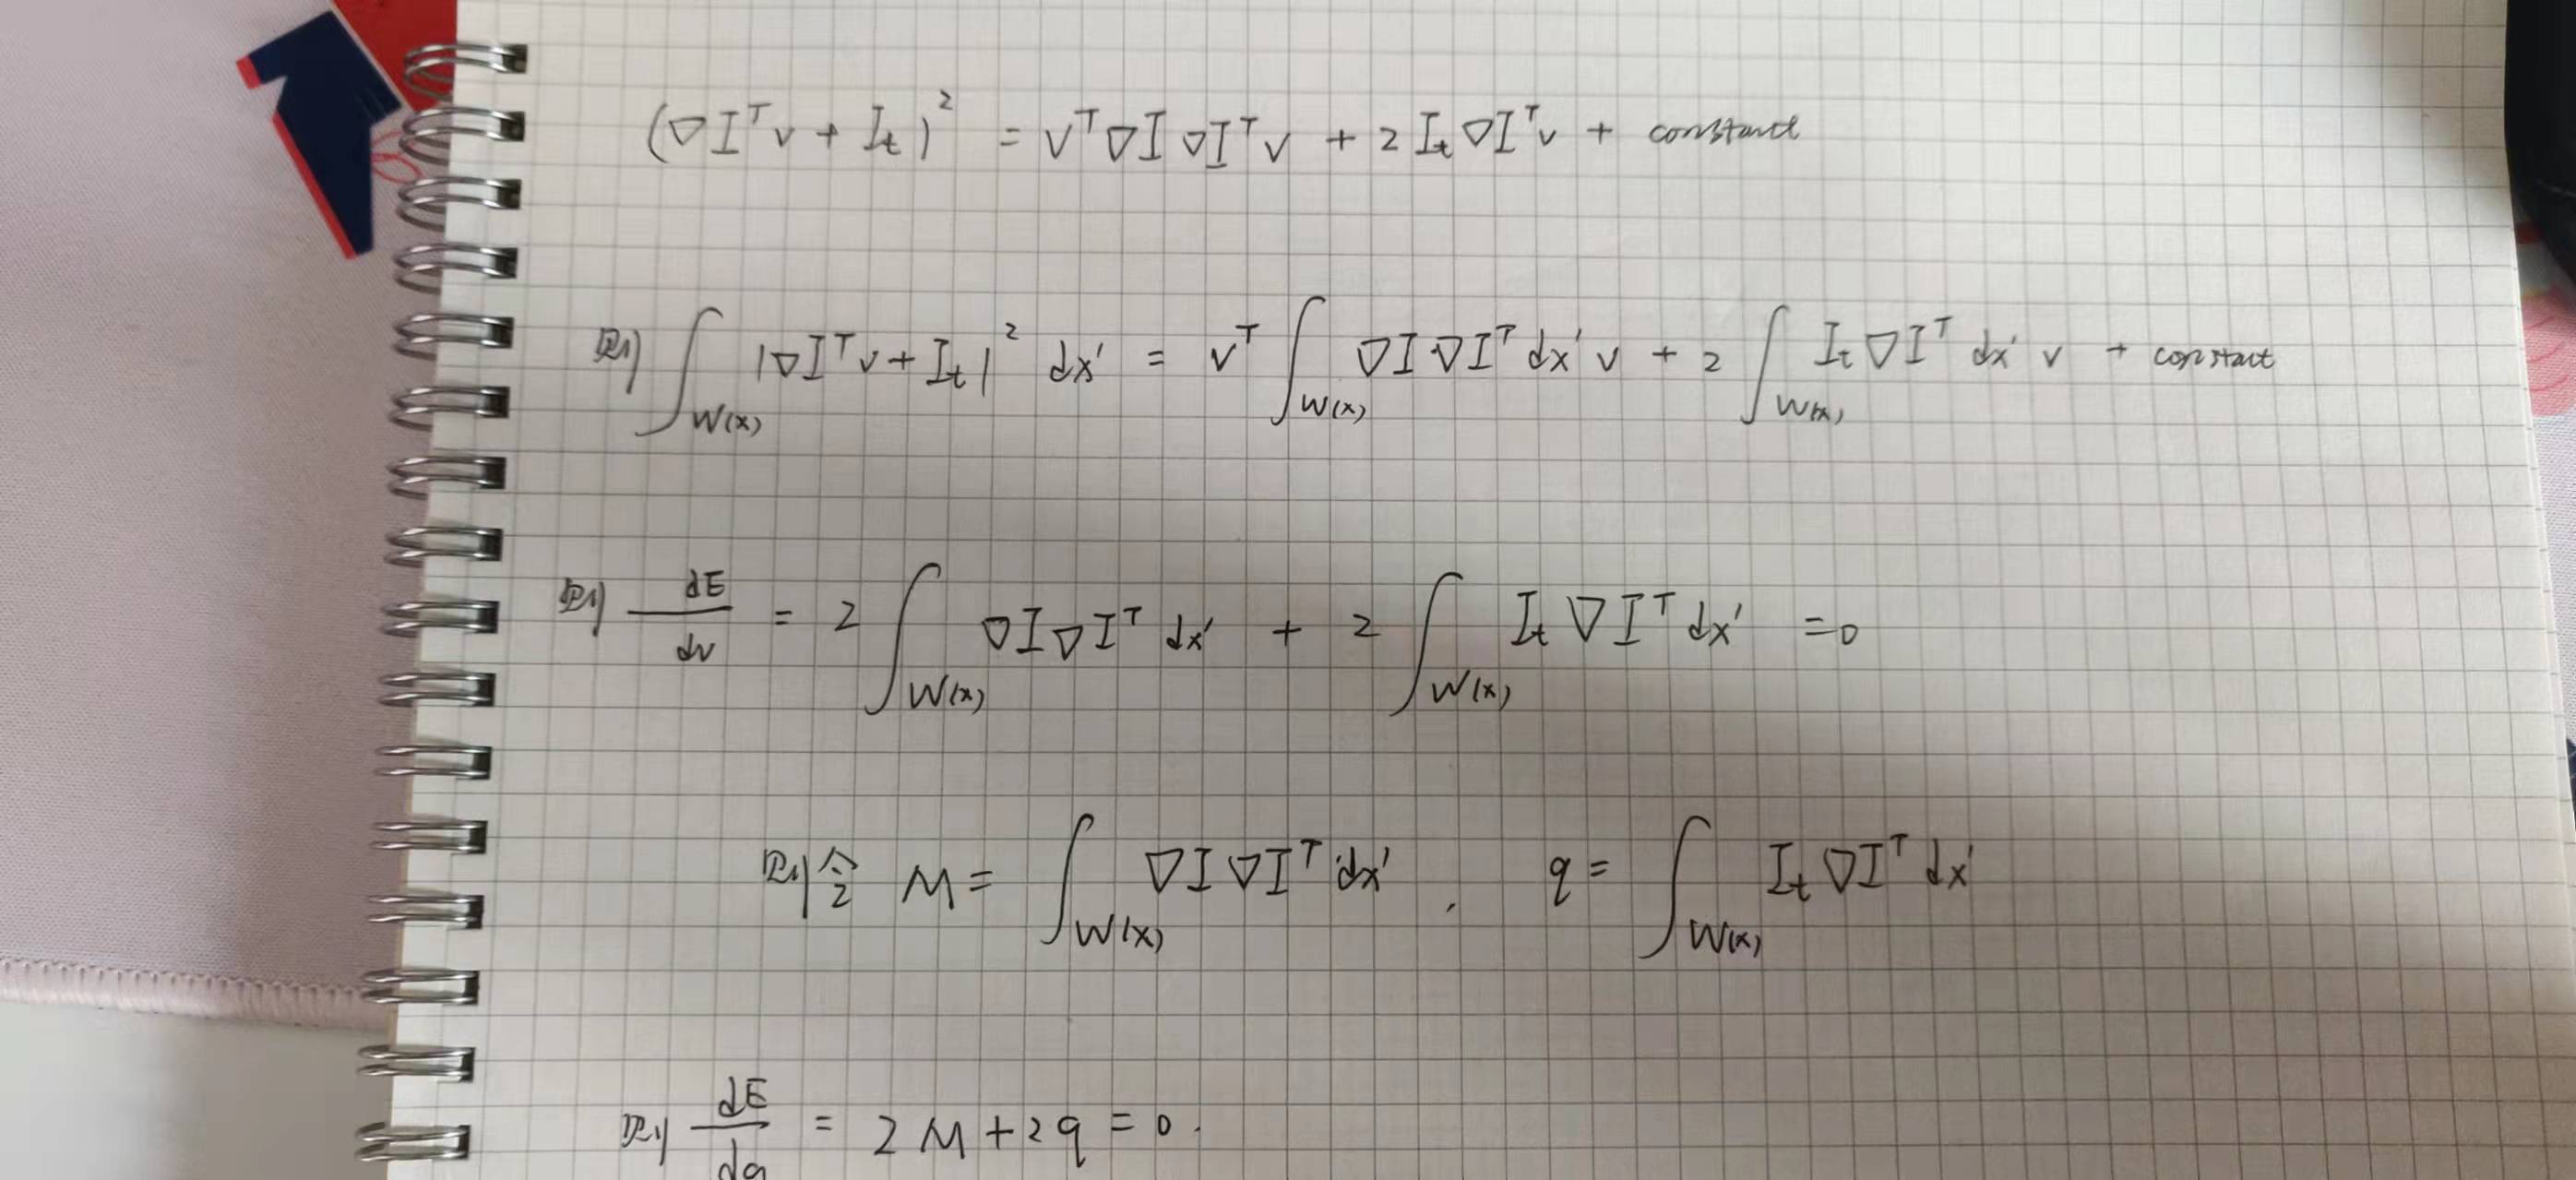 (∇I^T v + I_t)^2 = v^T ∇I ∇I^T v + 2 I_t ∇I^T v + constant
则 ∫_{W(x)} |∇I^T v + I_t|^2 dx' = v^T ∫_{W(x)} ∇I ∇I^T dx' v + 2 ∫_{W(x)} I_t ∇I^T dx' v + constant
则 dE/dv = 2 ∫_{W(x)} ∇I ∇I^T dx' + 2 ∫_{W(x)} I_t ∇I^T dx' = 0
则令 M = ∫_{W(x)} ∇I ∇I^T dx' , q = ∫_{W(x)} I_t ∇I^T dx'
则 dE/da = 2M + 2q = 0.